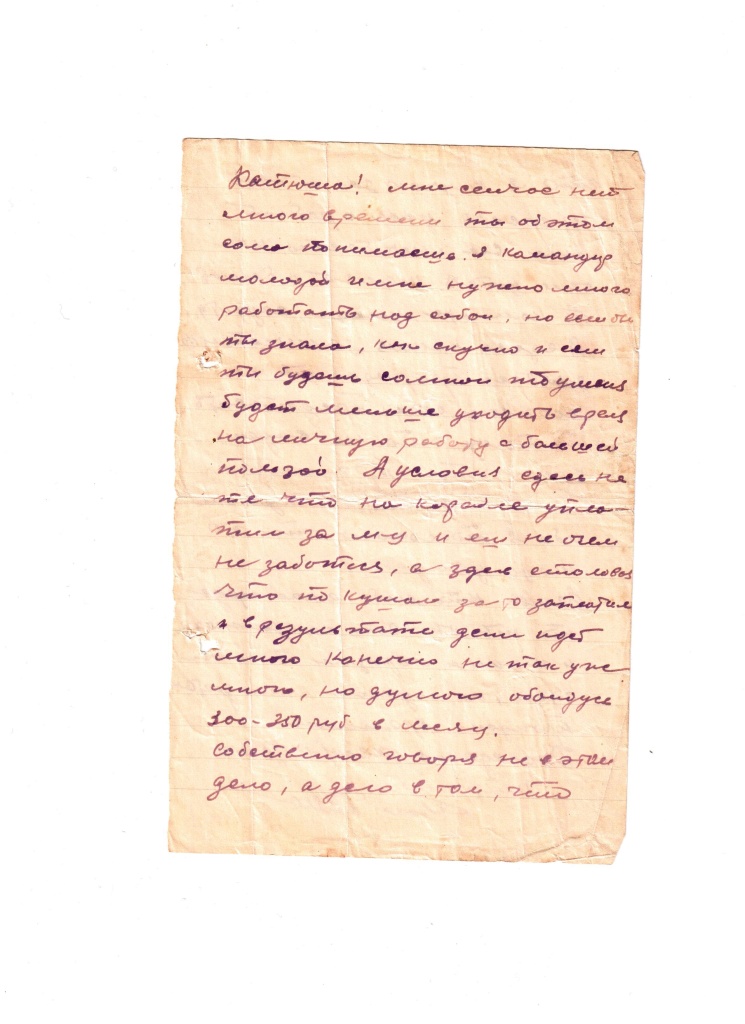 Катюша! мне сейчас нет
много времени ты об этом
сама понимаешь. Я камандир
молодой и мне нужно много
работать над собой, но если бы
ты знала, как скучно и если
ты будешь сомной то у меня
будет меньше уходить врем
на личную работу с большей
пользой. А условия здесь не
те что на корабле упла-
тил за м-ц и ни очем
не заботься, а здесь столовая
что по кушал за то заплатил
и в результате денег идет
много Канечно не так уже
много, но думаю обойдусь
300-350 руб в месяц.
Собственно говоря не в этом
дело, а дело в том, что